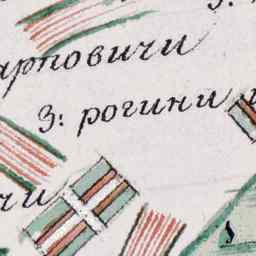 арповичи
З: рогини
чи